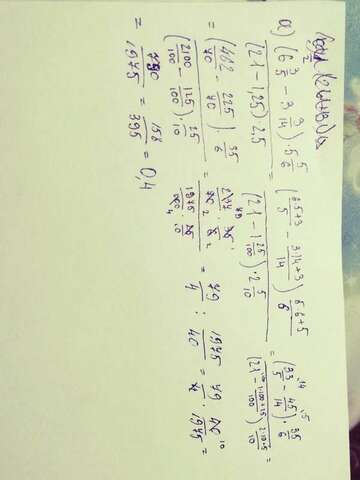 a) \frac{(6\frac{3}{5} - 3\frac{3}{14}) \cdot 5\frac{5}{6}}{(21 - 1,25) : 2,5} = \frac{(\frac{6 \cdot 5+3}{5} - \frac{3 \cdot 14+3}{14}) \cdot \frac{5 \cdot 6+5}{6}}{(21 - 1\frac{25}{100}) : 2\frac{5}{10}} = \frac{(\frac{33}{5} - \frac{45}{14}) \cdot \frac{35}{6}}{(21 - \frac{1 \cdot 100+25}{100}) : \frac{2 \cdot 10+5}{10}} =
= \frac{(\frac{462 - 225}{70}) \cdot \frac{35}{6}}{(\frac{2100}{100} - \frac{125}{100}) : \frac{25}{10}} = \frac{79}{4} : \frac{1975}{40} = \frac{79}{4} \cdot \frac{40}{1975} =
= \frac{790}{1975} = \frac{158}{395} = 0,4